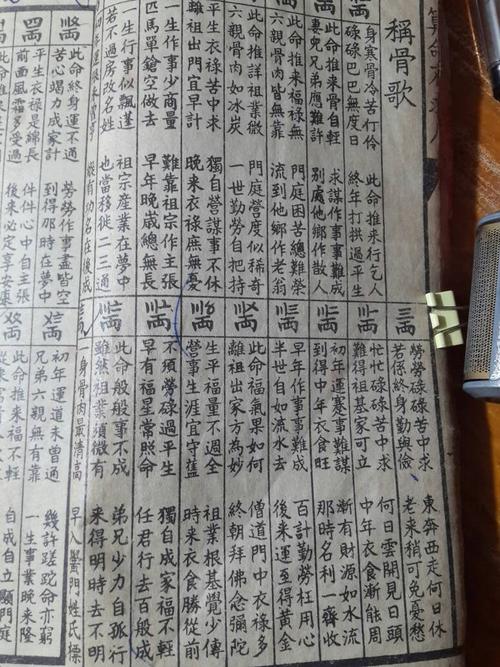 稱骨歌
身寒骨冷苦行伶 此命推來行乞人
碌碌巴巴無度日 終年打拱過平生
此命推來骨自輕 求謀作事事難成
妻兒兄弟應難許 別處他鄉作散人
此命推來福祿無 門庭困苦總難榮
六親骨肉皆無靠 流到他鄉作老翁
此命推詳祖業微 門庭營度似稀奇
六親骨肉如冰炭 一世勤勞自把持
平生衣祿苦中求 獨自營謀事不休
離祖出門宜早計 晚来衣祿庶無憂
一生作事少商量 難靠祖宗作主張
匹馬單鎗空做去 早年晚歲總無長
一生行事似飄蓬 祖宗產業在夢中
若不過房改名姓 也當移徙二三通
此命終身運不通 勞勞作事盡皆空
苦心竭力成家計 到得那時在夢中
平生衣祿是綿長 件件心中自主張
前面風霜多受過 後來必定享安康
勞勞碌碌苦中求 東奔西走何日休
若係終身勤與儉 老來稍可免憂愁
忙忙碌碌苦中求 何日雲開見日頭
難得祖基家可立 中年衣食漸能周
初年運蹇事難謀 漸有財源如水流
到得中年衣食旺 那時名利一齊收
早年作事事難成 百計勤勞枉用心
半世自如流水去 後來運至得黃金
此命福氣果如何 僧道門中衣祿多
離祖出家方為妙 終朝拜佛念彌陀
生平福量不週全 祖業根基覺少傳
營事生涯宜守舊 時來衣食勝從前
不須勞碌過平生 獨自成家福不輕
早有福星常照命 任君行去百般成
此命般般事不成 弟兄少力自孤行
雖然祖業須微有 來得明時去不明
身骨肉最清高 早入黌門姓氏標
初年運道未曾通 幾許蹉跎命亦窮
兄弟六親無有靠 一生事業晚來隆
此命推來福不輕 自成自立顯門庭